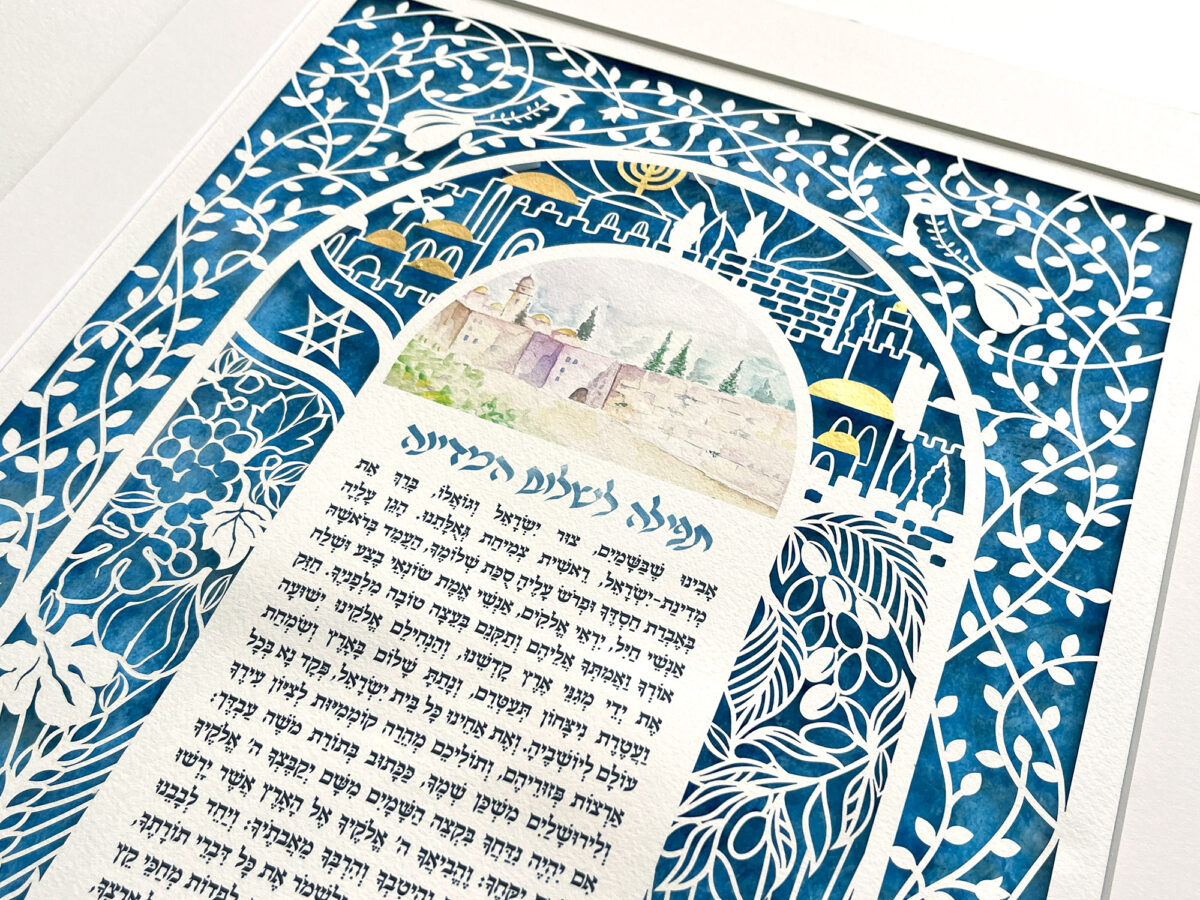 תפילה לשלום המדינה
אָבִינוּ שֶׁבַּשָּׁמַיִם, צוּר יִשְׂרָאֵל וְגוֹאֲלוֹ, בָּרֵךְ אֶת
מְדִינַת-יִשְׂרָאֵל, רֵאשִׁית צְמִיחַת גְּאֻלָּתֵנוּ. הָגֵן עָלֶיהָ
בְּאֶבְרַת חַסְדֶּךָ וּפְרֹשׂ עָלֶיהָ סֻכַּת שְׁלוֹמֶךָ, הַעֲמֵד בְּרֹאשָׁהּ
אַנְשֵׁי חַיִל, יִרְאֵי אֱלֹקִים, אַנְשֵׁי אֱמֶת שׂוֹנְאֵי בָצַע וּשְׁלַח
אוֹרְךָ וַאֲמִתְּךָ אֲלֵיהֶם וְתַקְּנֵם בְּעֵצָה טוֹבָה מִלְּפָנֶיךָ. חַזֵּק
אֶת יְדֵי מְגִנֵּי אֶרֶץ קָדְשֵׁנוּ, וְהַנְחִילֵם אֱלֹקֵינוּ יְשׁוּעָה
וַעֲטֶרֶת נִיצָּחוֹן תְּעַטְּרֵם, וְנָתַתָּ שָׁלוֹם בָּאָרֶץ וְשִׂמְחַת
עוֹלָם לְיוֹשְׁבֶיהָ. וְאֶת אַחֵינוּ כָּל בֵּית יִשְׂרָאֵל, פְּקָד נָא בְּכָל
אַרְצוֹת פְּזוּרֵיהֶם, וְתוֹלִיכֵם מְהֵרָה קוֹמְמִיּוּת לְצִיּוֹן עִירֶךָ
וְלִירוּשָׁלַיִם מִשְׁכַּן שְׁמֶךָ, כַּכָּתוּב בְּתוֹרַת מֹשֶׁה עַבְדֶּךָ:
אִם יִהְיֶה נִדַּחֲךָ בִּקְצֵה הַשָּׁמַיִם מִשָּׁם יְקַבֶּצְךָ ה' אֱלֹקֶיךָ
יִקָּחֶךָ: וֶהֱבִיאֲךָ ה' אֱלֹקֶיךָ אֶל הָאָרֶץ אֲשֶׁר יָרְשׁוּ
וְהֵיטִבְךָ וְהִרְבְּךָ מֵאֲבֹתֶיךָ: וְיַחֵד לְבָבֵנוּ
וְלִשְׁמוֹר אֶת כָּל דִּבְרֵי תוֹרָתֶךָ,
לִפְדּוֹת מְחַכֵּי קֵץ
אַרְצֶךָ,